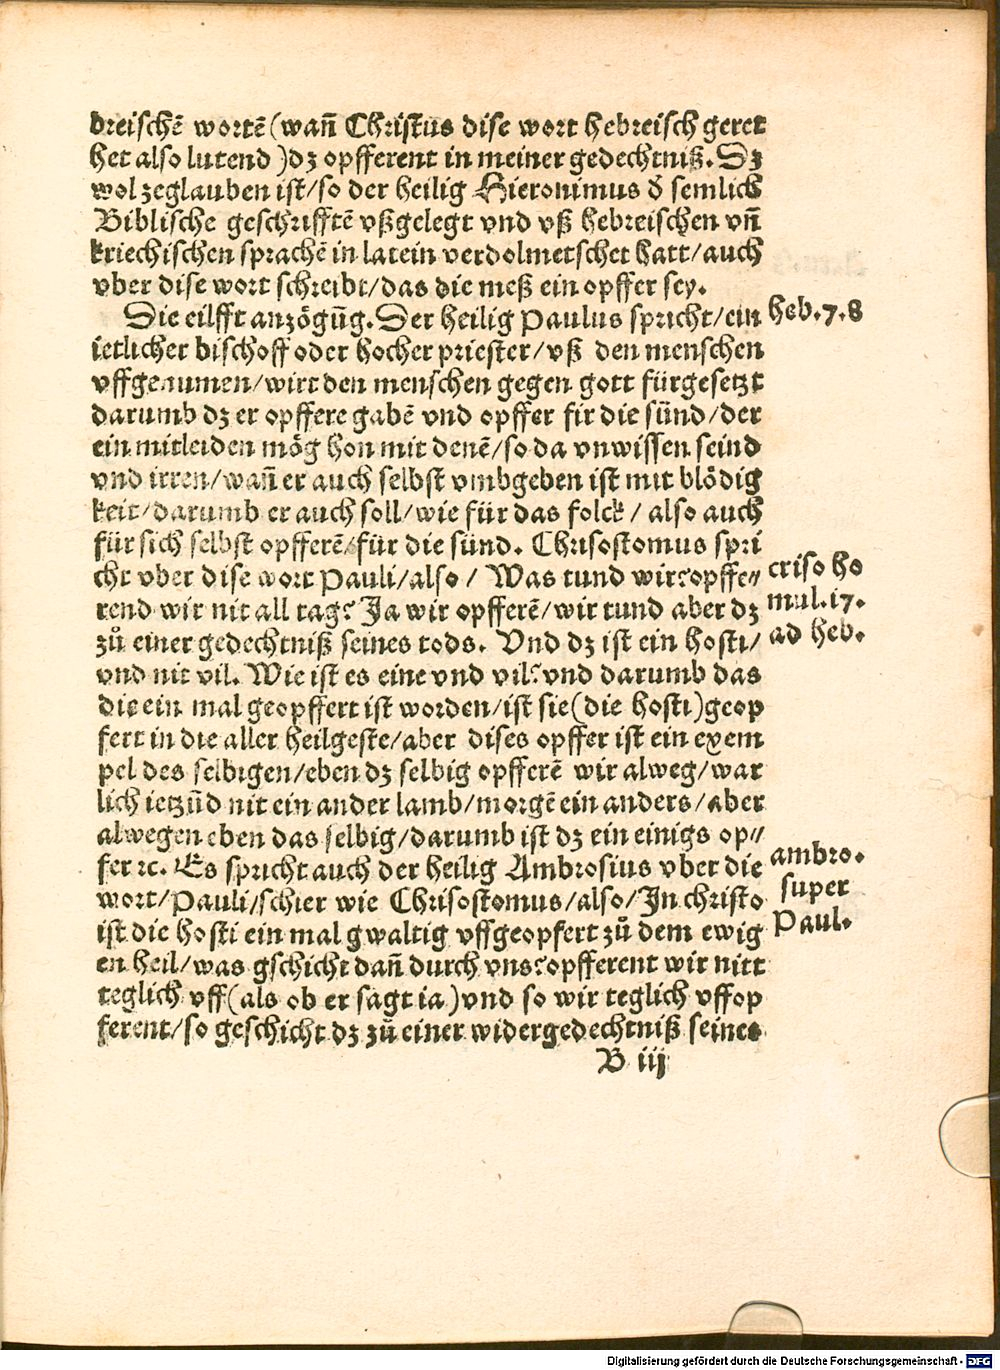 breischē wortē (wañ Christus dise wort hebreisch geret
het also lutend) dz opfferent in meiner gedechtniß. Dz
wol zeglauben ist/so der heilig Hieronimus d̄ semlich
Biblische geschrifftē vßgelegt vnd vß hebreischen vñ
kriechischen sprachē in latein verdolmetschet hatt/auch
vber dise wort schreibt/das die meß ein opffer sey.
Die eilfft anzögūg. Der heilig Paulus spricht/ein
ietlicher bischoff oder hocher priester/vß den menschen
vffgenumen/wirt den menschen gegen gott fürgesetzt
darumb dz er opffere gabē vnd opffer fir die sünd/der
ein mitleiden mög hon mit denē/so da vnwissen seind
vnd irren/wañ er auch selbst vmbgeben ist mit blödig
keit/darumb er auch soll/wie für das folck/also auch
für sich selbst opfferē/für die sünd. Chrisostomus spri
cht vber dise wort Pauli/also/ Was tund wir? opffe⸗
rend wir nit all tag? Ja wir opfferē/wir tund aber dz
zů einer gedechtniß seines tods. Vnd dz ist ein hosti/
vnd nit vil. Wie ist es eine vnd vil? vnd darumb das
die ein mal geopffert ist worden/ist sie (die hosti) geop
fert in die aller heilgeste/aber dises opffer ist ein exem
pel des selbigen/eben dz selbig opfferē wir alweg/war
lich ietzūd nit ein ander lamb/morgē ein anders/aber
alwegen eben das selbig/darumb ist dz ein einigs op⸗
fer ꝛc. Es spricht auch der heilig Ambrosius vber die
wort/Pauli/schier wie Chrisostomus/also/In christo
ist die hosti ein mal gwaltig vffgeopfert zů dem ewig
en heil/was gschicht dañ durch vns? opfferent wir nitt
teglich vff (als ob er sagt ia) vnd so wir teglich vffop
ferent/so geschicht dz zů einer widergedechtniß seines
B iij
heb.7.8
criso ho
mul.17.
ad heb.
ambro.
super
Paul.
Digitalisierung gefördert durch die Deutsche Forschungsgemeinschaft - DFG